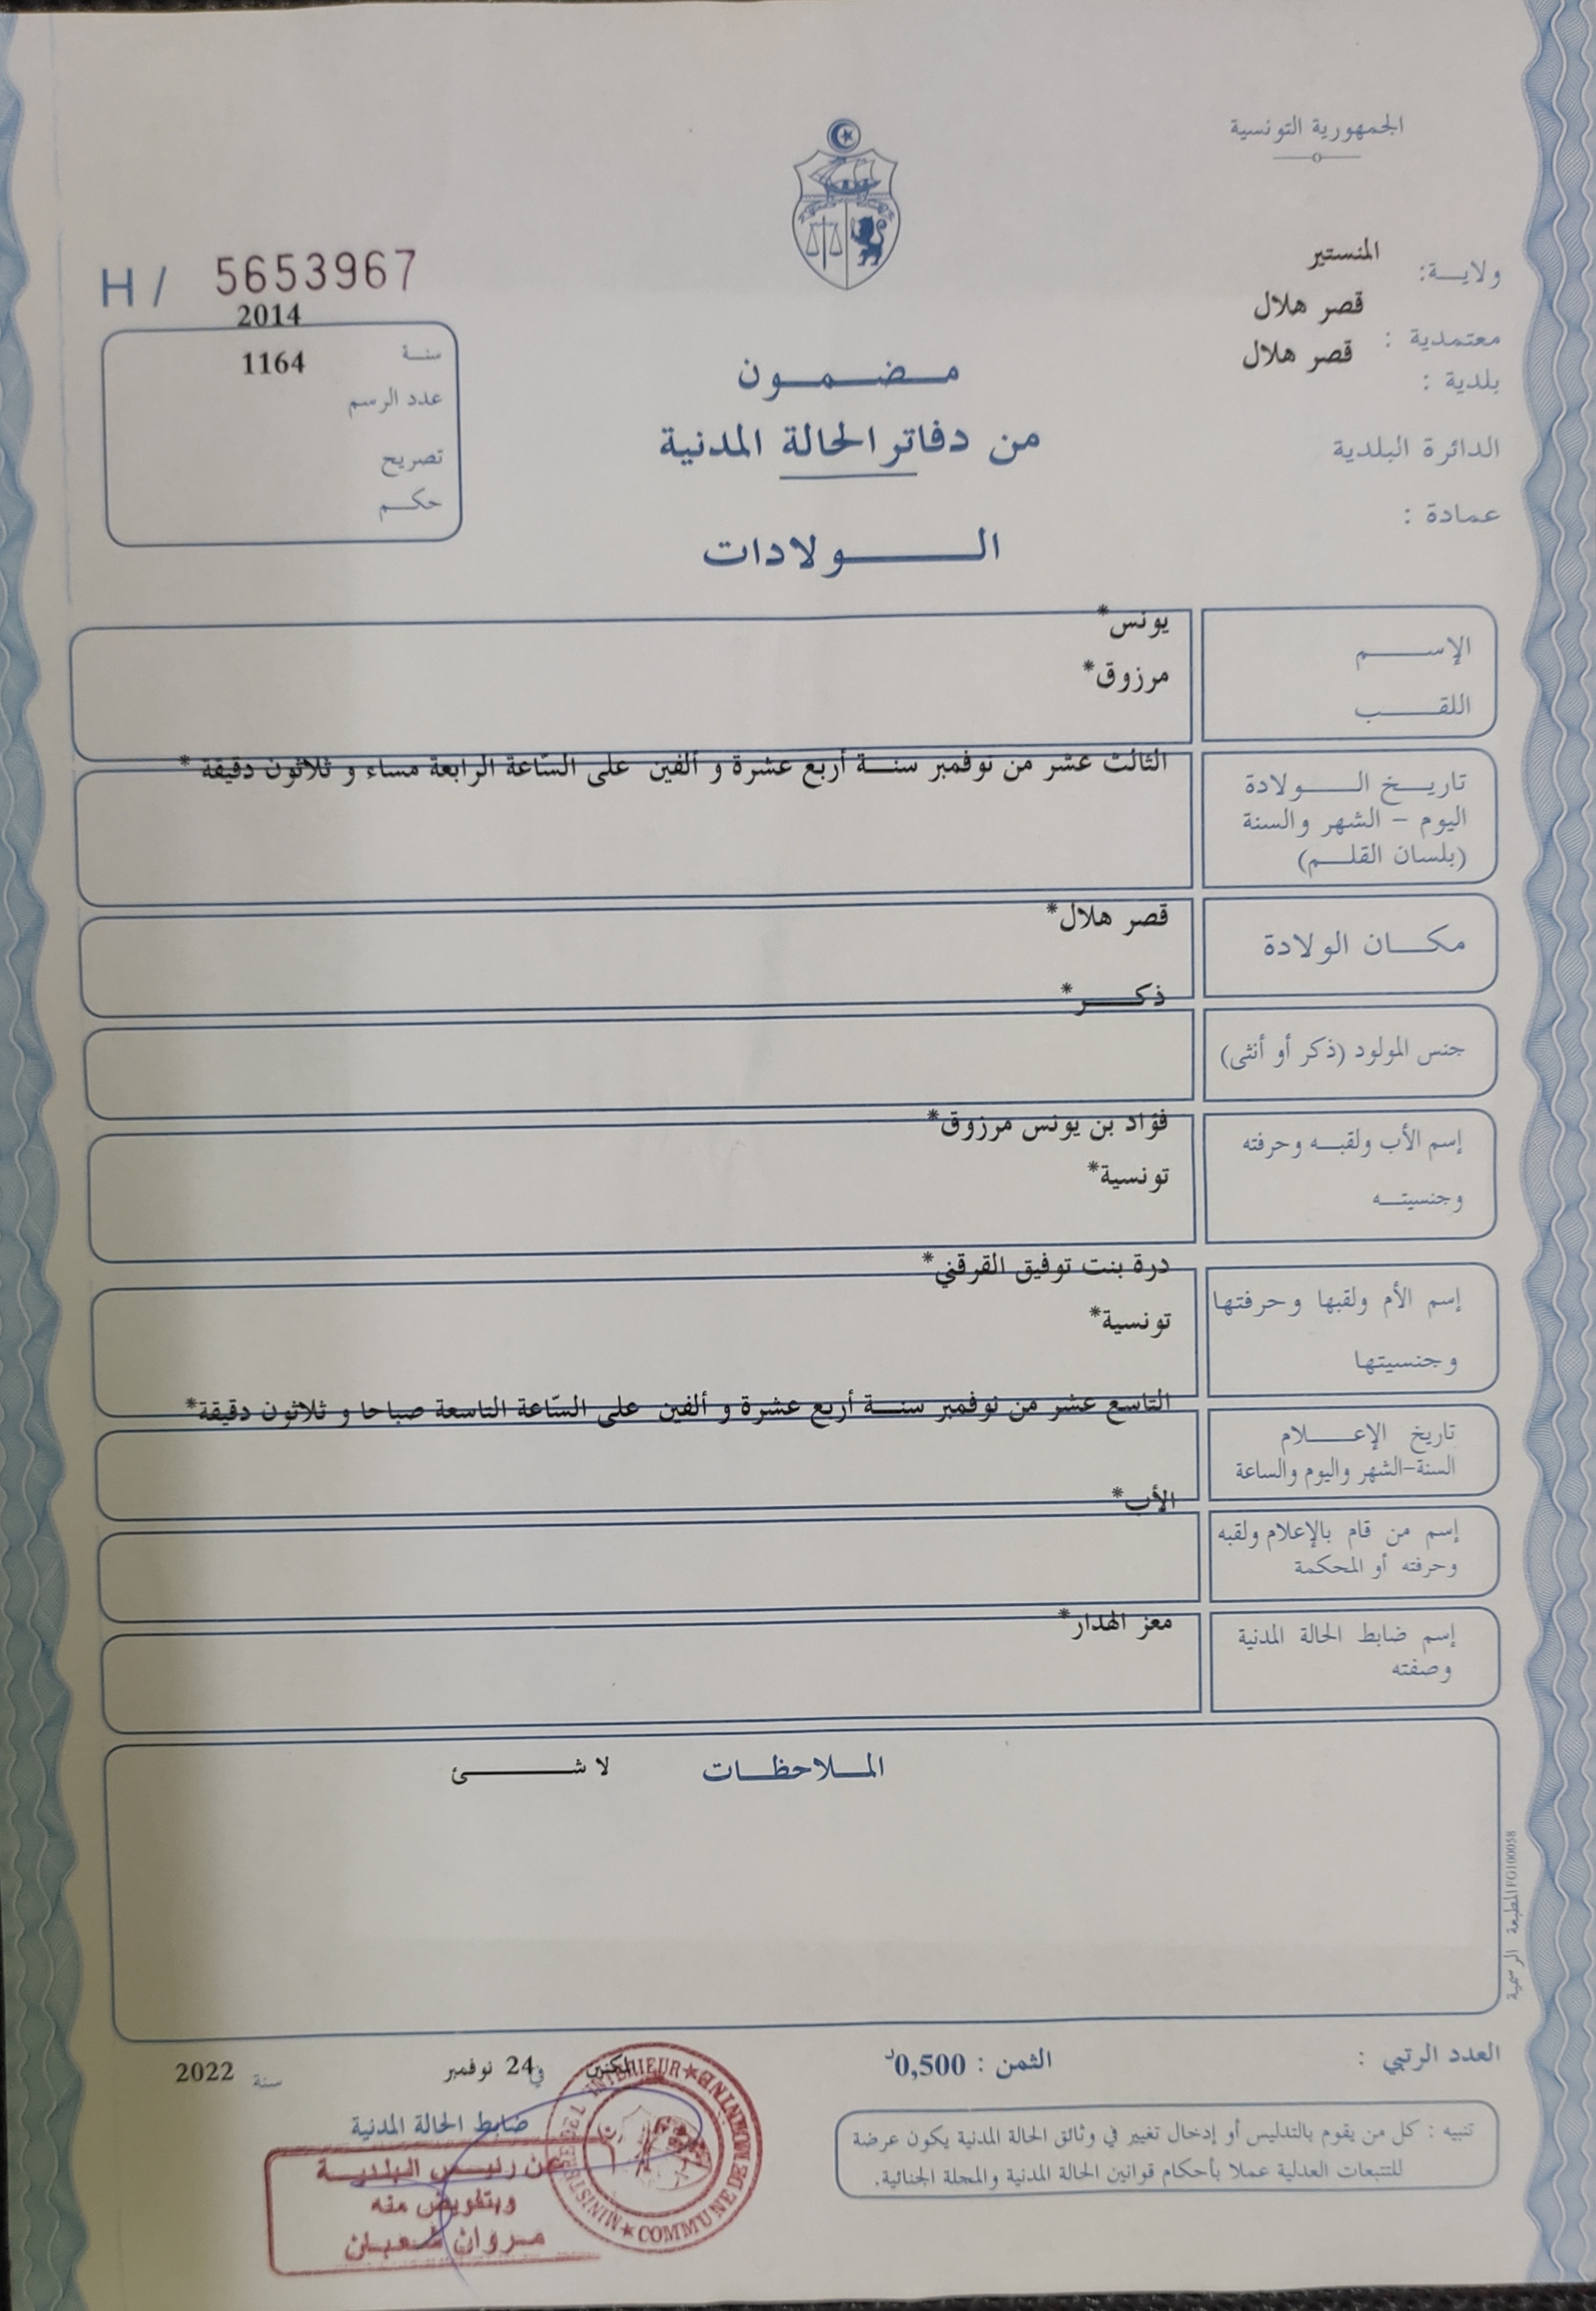 الجمهورية التونسية
ولاية: المنستير
معتمدية : قصر هلال
بلدية : قصر هلال
الدائرة البلدية
عمادة :
H / 5653967
2014
سنة
1164
عدد الرسم
تصريح
حكم
مضمون
من دفاتر الحالة المدنية
الولادات
الإسم
يونس*
اللقب
مرزوق*
تاريخ الولادة
اليوم - الشهر والسنة
(بلسان القلم)
الثالث عشر من نوفمبر سنة أربع عشرة و ألفين على السّاعة الرابعة مساء و ثلاثون دقيقة *
مكان الولادة
قصر هلال*
جنس المولود (ذكر أو أنثى)
ذكر*
إسم الأب ولقبه وحرفته
وجنسيته
فؤاد بن يونس مرزوق*
تونسية*
إسم الأم ولقبها وحرفتها
وجنسيتها
درة بنت توفيق القرقني*
تونسية*
تاريخ الإعلام
السنة-الشهر واليوم والساعة
التاسع عشر من نوفمبر سنة أربع عشرة و ألفين على السّاعة التاسعة صباحا و ثلاثون دقيقة*
إسم من قام بالإعلام ولقبه
وحرفته أو المحكمة
الأب*
إسم ضابط الحالة المدنية
وصفته
معز الهدار*
الملاحظات لا شئ
المطبعة الرسمية FG100058
العدد الرتبي :
الثمن : 0,500د
في 24 نوفمبر سنة 2022
ضابط الحالة المدنية
عن رئيس البلدية
وبتفويض منه
مروان شعبان
COMMUNE DE
تنبيه : كل من يقوم بالتدليس أو إدخال تغيير في وثائق الحالة المدنية يكون عرضة
للتتبعات العدلية عملا بأحكام قوانين الحالة المدنية والمجلة الجنائية.